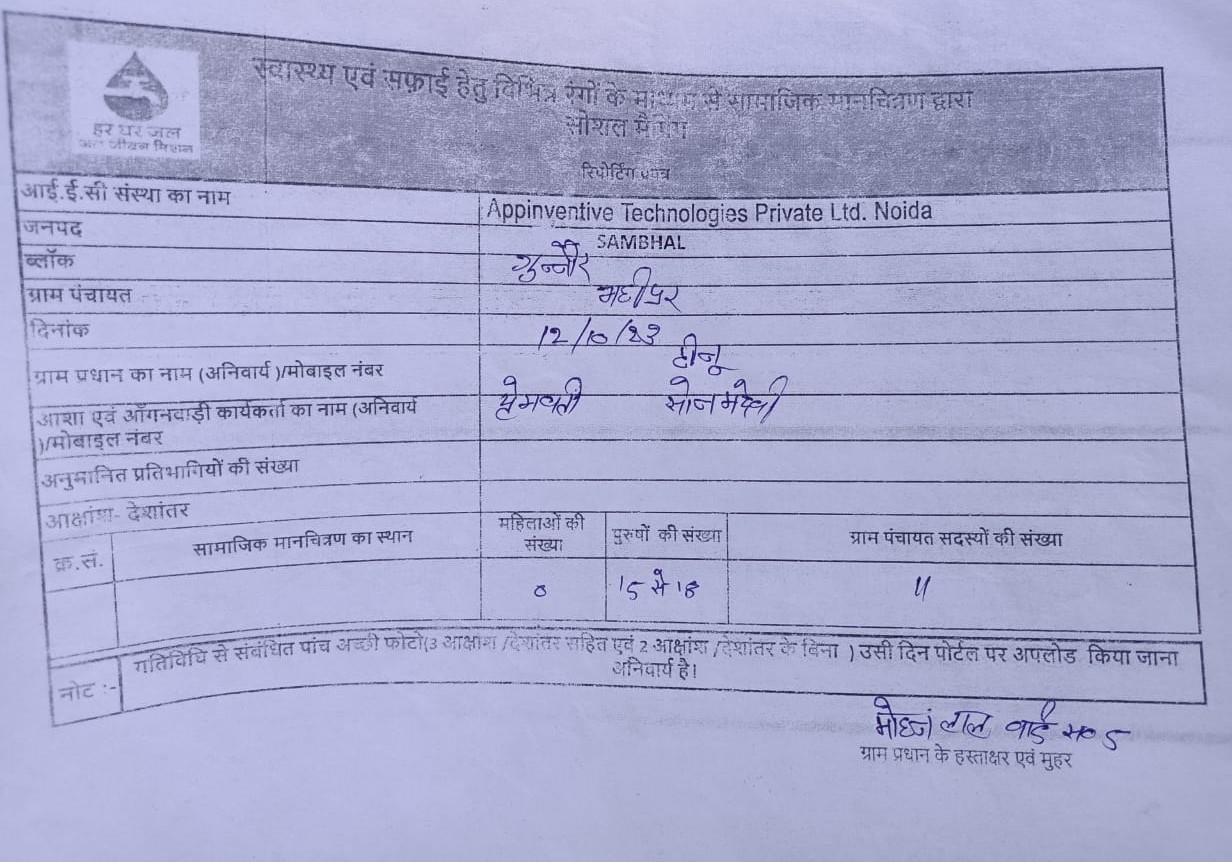 हर घर जल
जल जीवन मिशन
स्वास्थ्य एवं सफ़ाई हेतु विभिन्न रंगों के माध्यम से सामाजिक मानचित्रण द्वारा
सोशल मैपिंग
रिपोर्टिंग प्रपत्र
आई.ई.सी संस्था का नाम Appinventive Technologies Private Ltd. Noida
जनपद SAMBHAL
ब्लॉक गुन्नौर
ग्राम पंचायत
दिनांक 12/10/23
ग्राम प्रधान का नाम (अनिवार्य )/मोबाइल नंबर टीनू
आशा एवं आँगनवाड़ी कार्यकर्ता का नाम (अनिवार्य प्रेमवती
)/मोबाइल नंबर
अनुमानित प्रतिभागियों की संख्या
आक्षांश- देशांतर
क्र.सं. सामाजिक मानचित्रण का स्थान महिलाओं की संख्या पुरुषों की संख्या ग्राम पंचायत सदस्यों की संख्या
15 से 18 11
नोट :- गतिविधि से संबंधित पांच अच्छी फोटो(3 आक्षांश /देशांतर सहित एवं 2 आक्षांश /देशांतर के बिना ) उसी दिन पोर्टल पर अपलोड किया जाना
अनिवार्य है।
लाल वार्ड स० 5
ग्राम प्रधान के हस्ताक्षर एवं मुहर